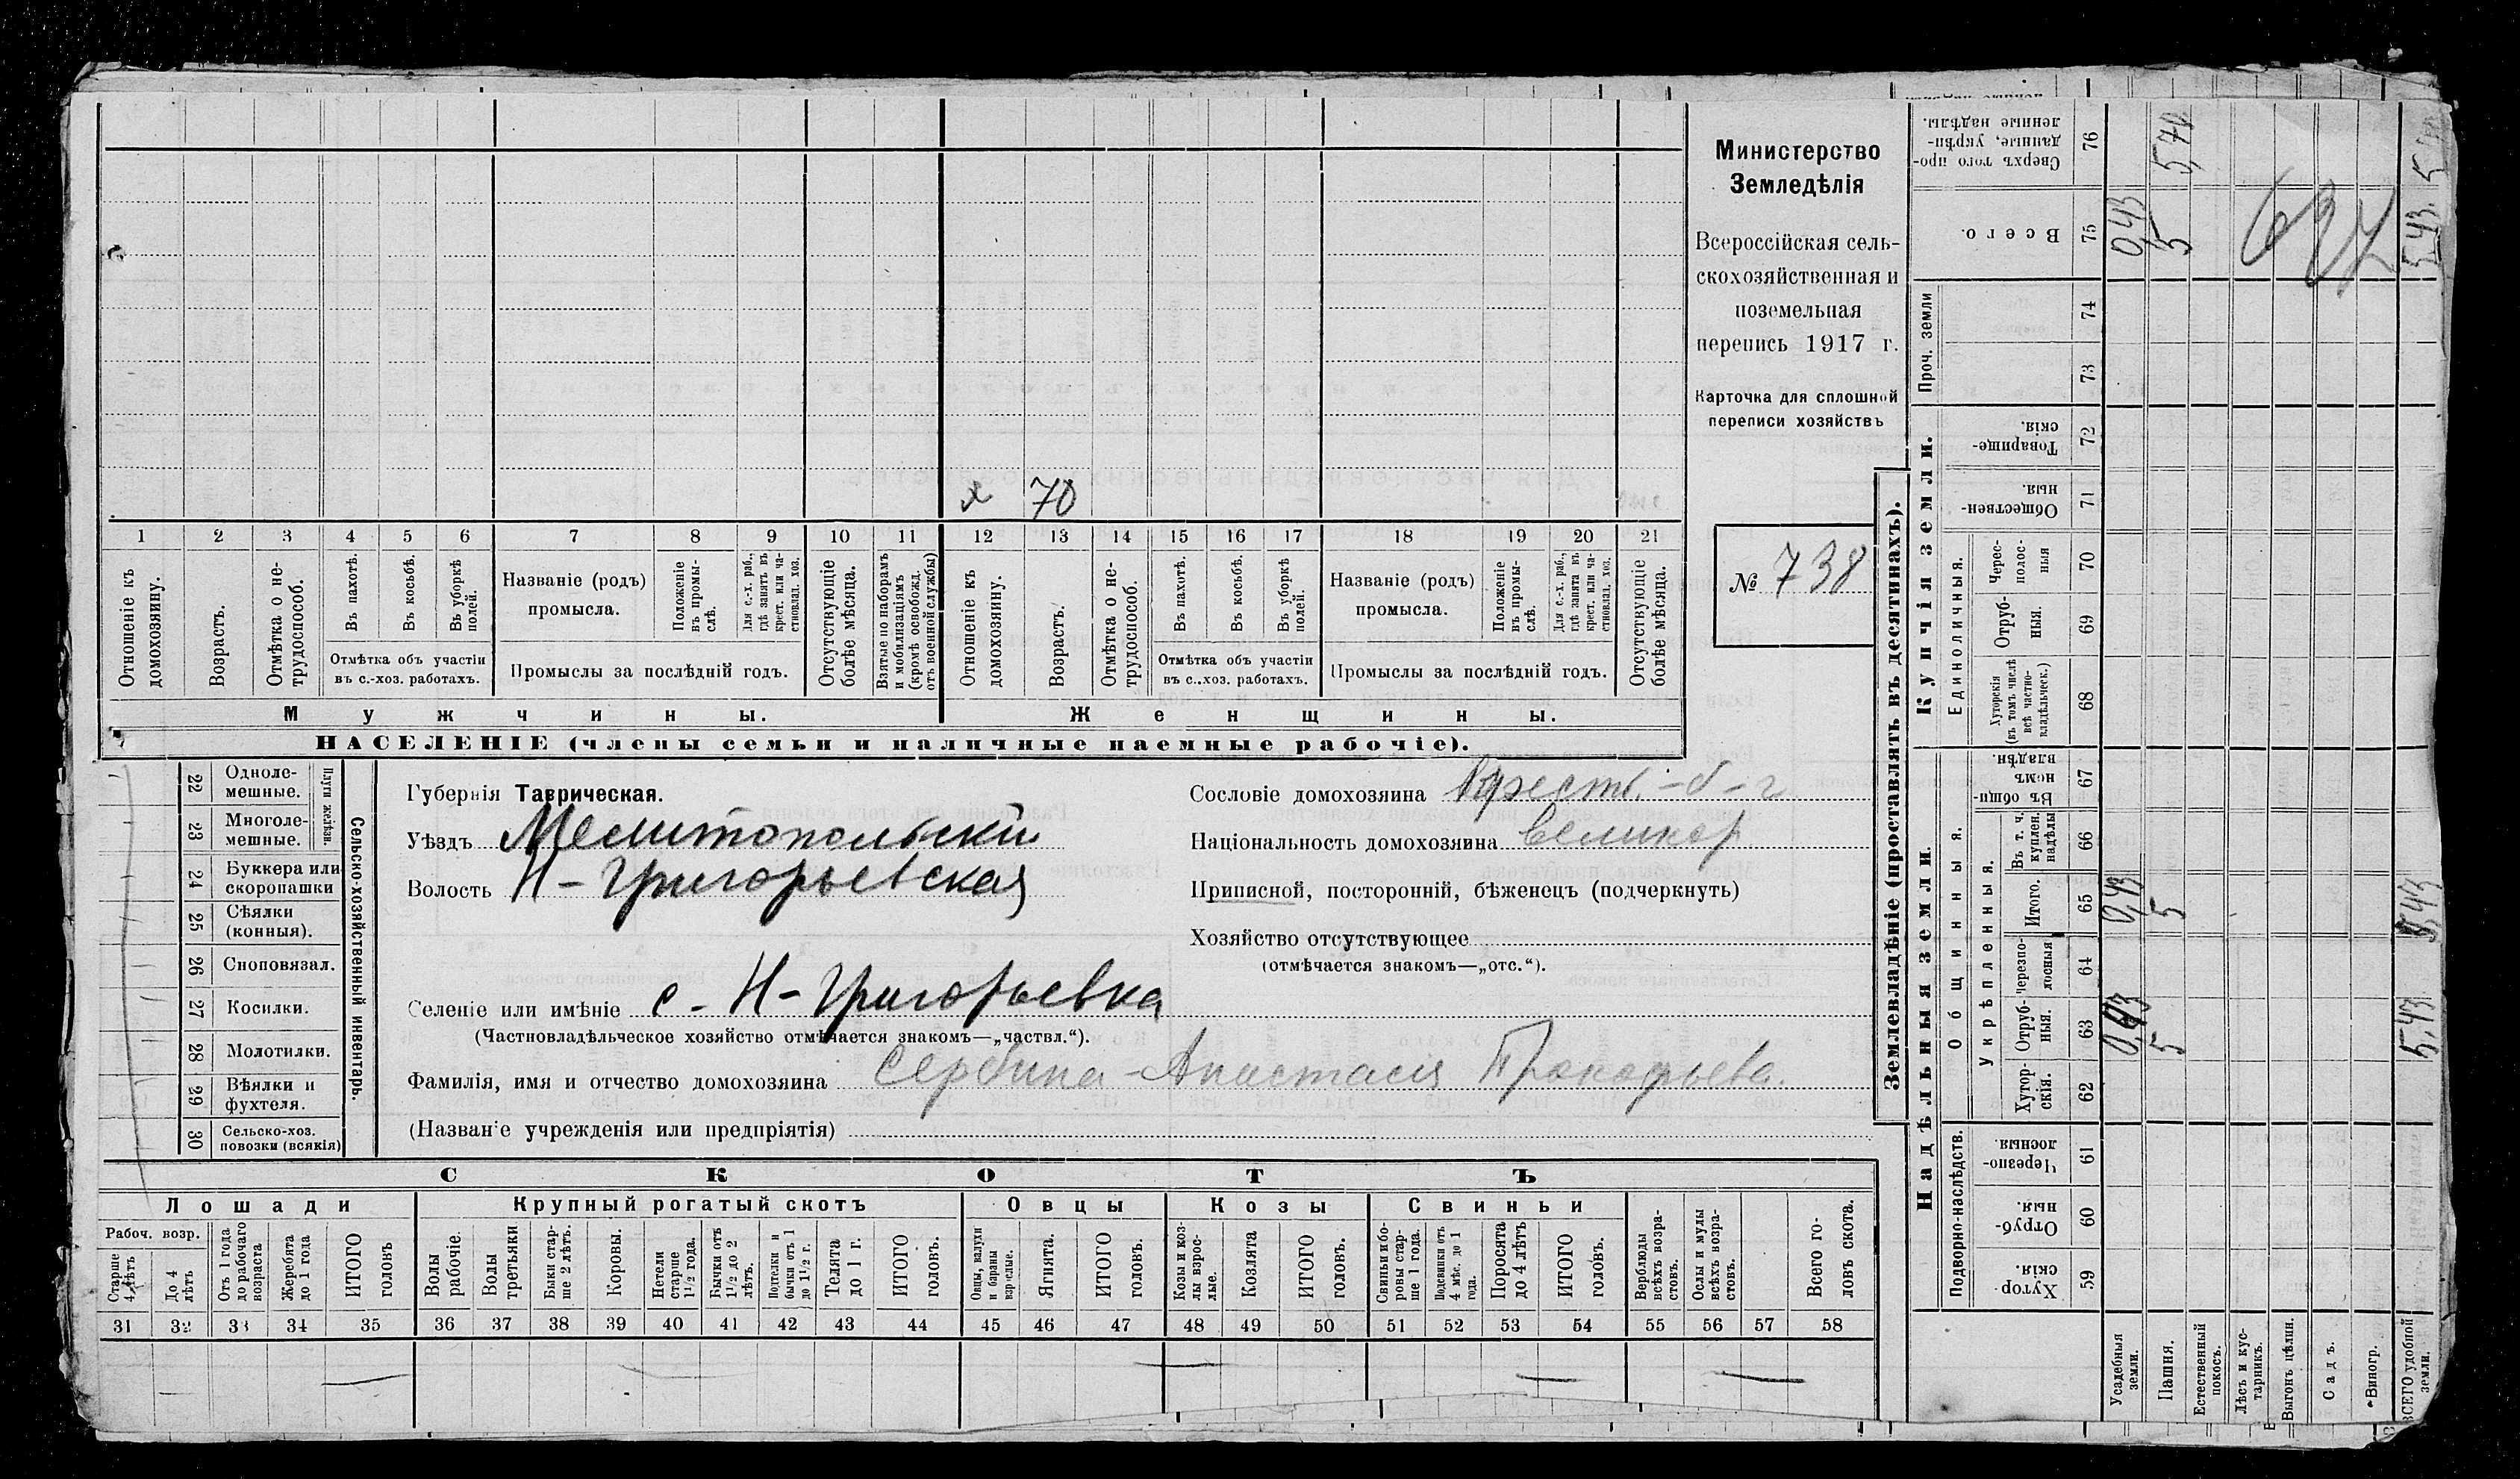 Министерство
Земледѣлія
Всероссійская сель-
скохозяйственная и
поземельная
перепись 1917 г.
Карточка для сплошной
переписи хозяйствъ
№ 738
х 70
1 2 3 4 5 6 7 8 9 10 11 12 13 14 15 16 17 18 19 20 21
Отношеніе къ
домохозяину.
Возрастъ.
Отмѣтка о не-
трудоспособ.
Въ пахотѣ.
Въ косьбѣ.
Въ уборкѣ
полей.
Отмѣтка объ участіи
въ с.-хоз. работахъ.
Названіе (родъ)
промысла.
Положеніе
въ промы-
слѣ.
Для с.-х. раб.,
гдѣ занятъ въ
крест. или ча-
стновлад. хоз.
Промыслы за послѣдній годъ.
Отсутствующіе
болѣе мѣсяца.
Взятые по наборамъ
и мобилизаціямъ
(кромѣ освобожд.
отъ военной службы)
Отношеніе къ
домохозяину.
Возрастъ.
Отмѣтка о не-
трудоспособ.
Въ пахотѣ.
Въ косьбѣ.
Въ уборкѣ
полей.
Отмѣтка объ участіи
въ с.-хоз. работахъ.
Названіе (родъ)
промысла.
Положеніе
въ промы-
слѣ.
Для с.-х. раб.,
гдѣ занята въ
крест. или ча-
стновлад. хоз.
Промыслы за послѣдній годъ.
Отсутствующіе
болѣе мѣсяца.
Мужчины.
Женщины.
НАСЕЛЕНІЕ (члены семьи и наличные наемные рабочіе).
22 Одноле-
мешные.
23 Многоле-
мешные.
Плуги желѣзн.
24 Буккера или
скоропашки
25 Сѣялки
(конныя).
26 Сноповязал.
27 Косилки.
28 Молотилки.
29 Вѣялки и
фухтеля.
30 Сельско-хоз.
повозки (всякія)
Сельско-хозяйственный инвентарь.
Губернія Таврическая.
Уѣздъ Мелитопольскій
Волость Н-Григорьевская
Селеніе или имѣніе с. Н-Григорьевка
(Частновладѣльческое хозяйство отмѣчается знакомъ—„частвл.“).
Фамилія, имя и отчество домохозяина Сербина Анастасія Прокофьева.
(Названіе учрежденія или предпріятія)
Сословіе домохозяина
Національность домохозяина великор
Приписной, посторонній, бѣженецъ (подчеркнуть)
Хозяйство отсутствующее
(отмѣчается знакомъ—„отс.“).
СКОТЪ
Лошади
Крупный рогатый скотъ
Овцы
Козы
Свиньи
Рабоч. возр.
Старше
4 лѣтъ
До 4
лѣтъ
Отъ 1 года
до рабочаго
возраста
Жеребята
до 1 года
ИТОГО
головъ
Волы
рабочіе.
Волы
третьяки
Быки стар-
ше 2 лѣтъ.
Коровы.
Нетели
старше
1½ года.
Бычки отъ
1½ до 2
лѣтъ.
Подтелки и
бычки отъ 1
до 1½ г.
Телята
до 1 г.
ИТОГО
головъ.
Овцы, валухи
и бараны
взрослые.
Ягнята.
ИТОГО
головъ.
Козы и коз-
лы взрос-
лые.
Козлята
ИТОГО
головъ.
Свиньи и бо-
ровы стар-
ше 1 года.
Подсвинки отъ
4 мѣс. до 1
года.
Поросята
до 4 лѣтъ
ИТОГО
головъ.
Верблюды
всѣхъ возра-
стовъ.
Ослы и мулы
всѣхъ возра-
стовъ.
Всего го-
ловъ скота.
31 32 33 34 35 36 37 38 39 40 41 42 43 44 45 46 47 48 49 50 51 52 53 54 55 56 57 58
Землевладѣніе (проставлять въ десятинахъ).
Надѣльныя земли.
Купчія земли.
Проч. земли
Подворно-наслѣдств.
Общинныя.
Укрѣпленныя.
Единоличныя.
Сверхъ того про-
данные, укрѣп-
ленные надѣлы.
76 5,70
Всего. 75 0,43 5 5,43
637
74
73
Товарище-
скія. 72
Обществен-
ныя. 71
Черес-
полос-
ныя 70
Отруб-
ныя. 69
Хуторскія
(въ томъ числѣ
всѣ частно-
владѣльческ.) 68
Въ общи-
номъ
владѣн. 67
Въ т. ч.
куплен.
надѣлы 66
Итого. 65 0,43 5 5,43
Черезпо-
лосныя 64
Отруб-
ныя. 63 0,43 5 5,43
Хутор-
скія. 62
Черезпо-
лосныя. 61
Отруб-
ныя. 60
Хутор-
скія. 59
Усадебныя
земли.
Пашня.
Естественный
покосъ.
Лѣсъ и кус-
тарникъ.
Выгонъ цѣлин.
Садъ.
Виногр.
ВСЕГО удобной
земли.